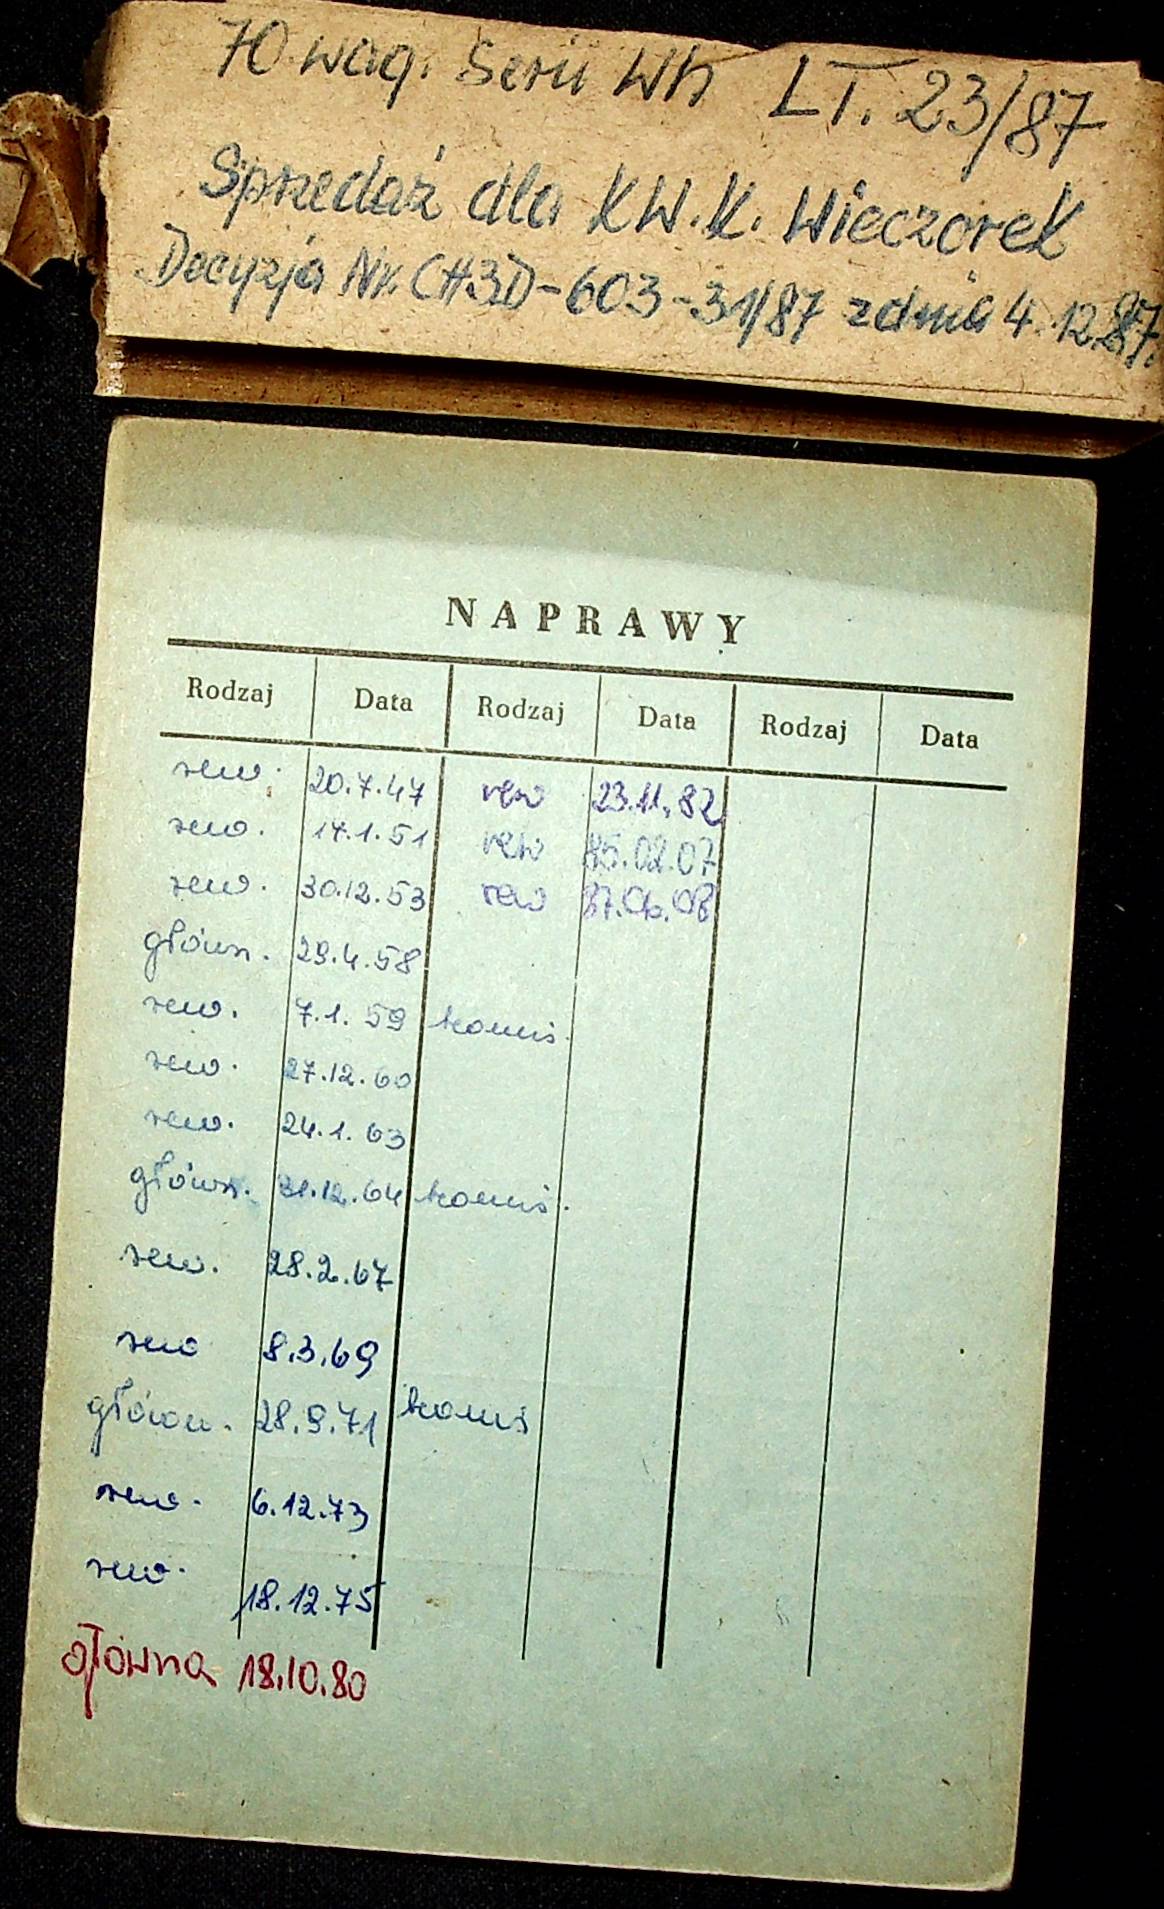 70 wag. Serii Wh LT. 23/87
Sprzedaż dla KW.K. Wieczorek
Decyzja Nr. CH3D-603-31/87 z dnia 4.12.87.
NAPRAWY
Rodzaj Data Rodzaj Data Rodzaj Data
rew. 20.7.47 rew 23.11.82
rew. 17.1.51 rew 85.02.07
rew. 30.12.53 rew 87.06.08
główn. 29.4.58
rew. 7.1.59 komis.
rew. 27.12.60
rew. 24.1.63
główn. 31.12.64 komis.
rew. 28.2.67
rew 8.3.69
główn. 28.9.71 komis
rew. 6.12.73
rew. 18.12.75
główna 18.10.80